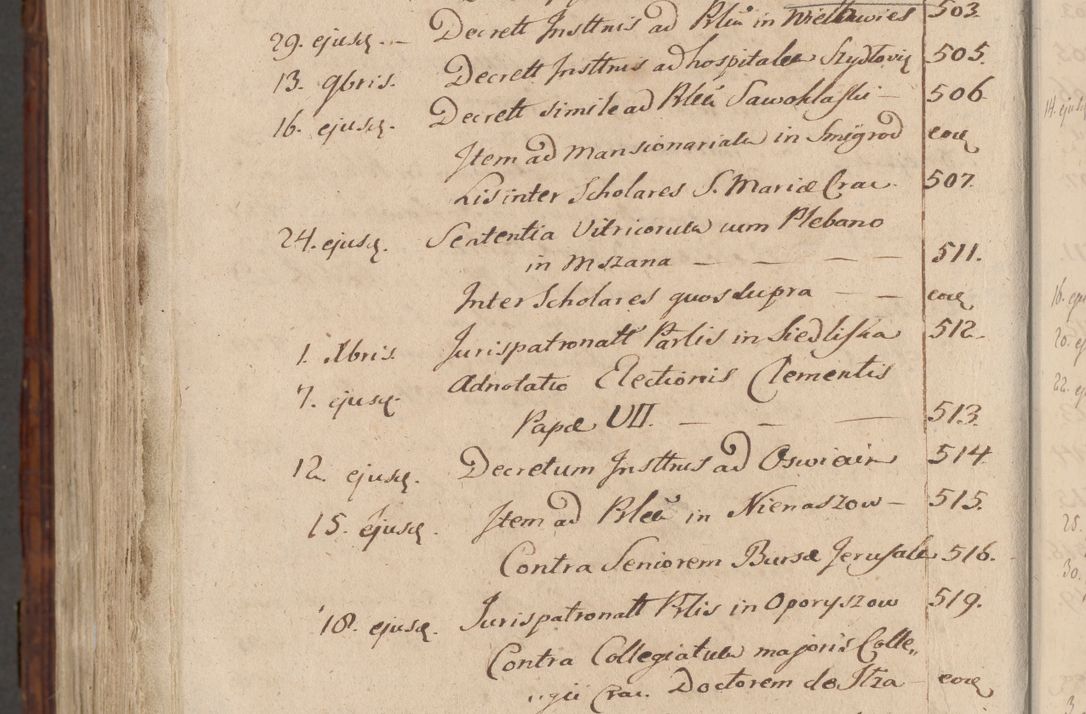 29. ejusq. — Decrett Insttnis ad Plēū in Wielkawies 503.
13. 9bris. Decrett Insttnis ad hospitale Szydłovię 505.
16. ejusq. Decrett simile ad Plēū Sawoklaski — 506
Item ad Mansionariatū in Smigrod eoq
Lis inter Scholares S. Mariæ Crac. 507.
24. ejusq. Sententia Vitricorum cum Plebano
in Mszana — — — — 511.
Inter Scholares quos supra — — eoq
1. Xbris. Jurispatronatt Parlis in Siedliska 512.
7. ejusq. Adnotatio Electionis Clementis
Papæ VII. — — — 513.
12. ejusq. Decretum Insttnis ad Oswiecin 514.
15. ejusq. Item ad Plēū in Nienaszow — 515.
Contra Seniorem Bursæ Jerusale 516.
18. ejusq. Jurispatronatt Plis in Oporyszow 519.
Contra Collegiatum majoris Colle„
„gii Crac. Doctorem de Ilza — eoq